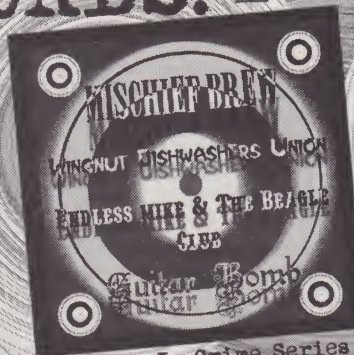 MISCHIEF BREW
WINGNUT DISHWASHERS UNION
ENDLESS MIKE & THE BEAGLE
CLUB
Guitar Bomb
Crime Series